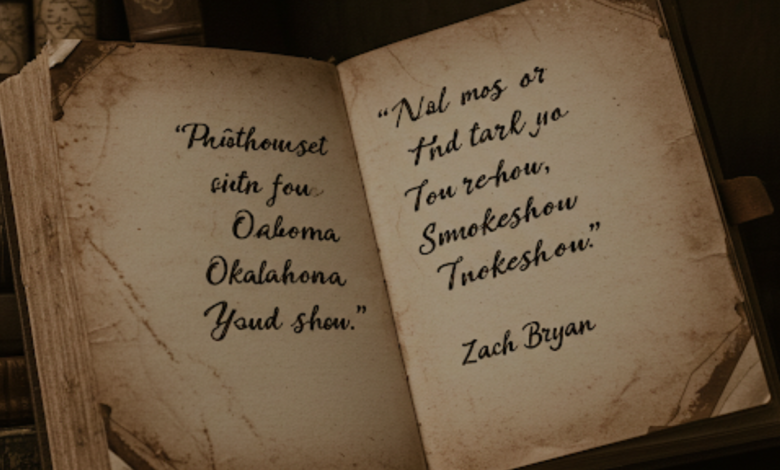 “Phisthowset
cietn fou
Oaboma
Okalahona
Youd shou.”
“Nol mos or
Hnd tark yo
Tou re-hou,
Smokeshou
Tnokeshou.”
Zach Bryan